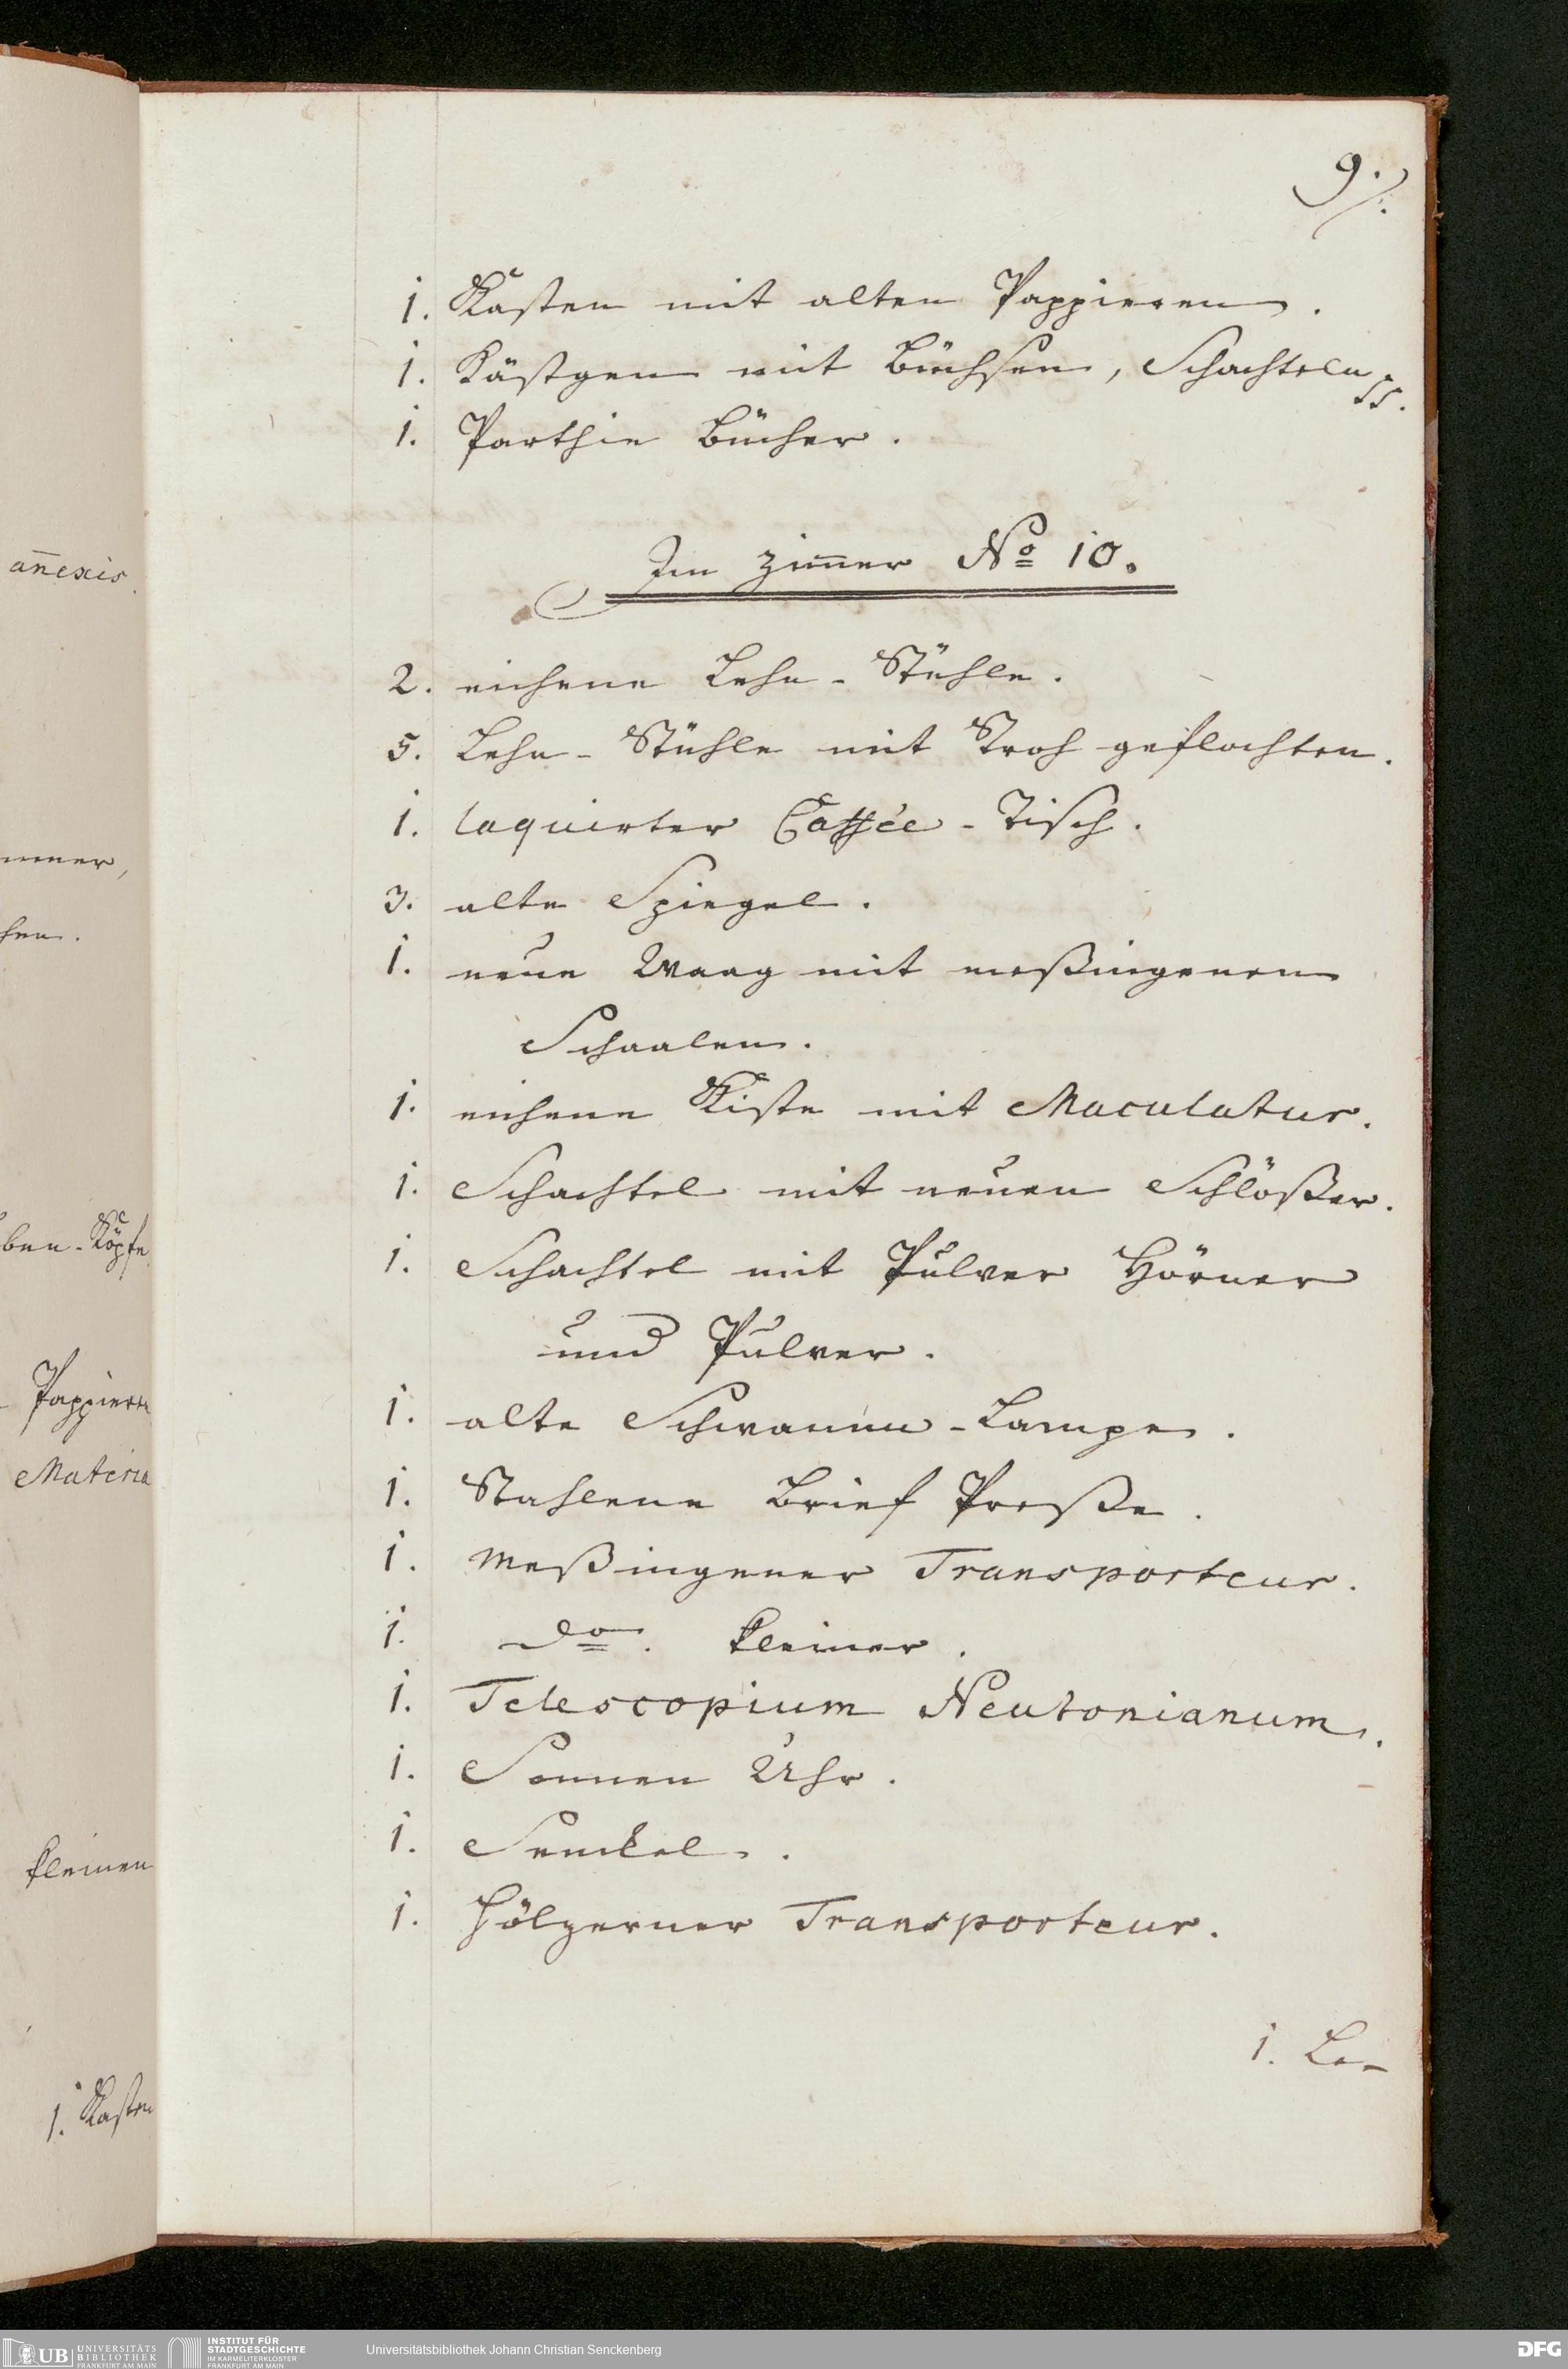 9.
1. Kasten mit alten Pappieren.
1. Kästgen mit Büchsen, Schachteln pp.
1. Parthie Bücher.
Im Zim̅er No 10.
2. eichene Lehn-Stühle.
5. Lehn-Stühle mit Stroh geflochten.
1. laquirter Caffée-Tisch.
3. alte Spiegel.
1. neue Waag mit meßingenen
Schaalen.
1. eichene Kiste mit Maculatur.
1. Schachtel mit neuen Schlößer.
1. Schachtel mit Pulver Hörner
und Pulver.
1. alte Schwamm-Lampe.
1. Stahlene Brief Preße.
1. Meßingener Transporteur.
1. do. kleiner.
1. Telescopium Neutonianum.
1. Sonnen Uhr.
1. Senckel.
1. hölzerner Transporteur.
1. Le-
an̅exis.
mmer,
hen.
ben-Köpfe
Pappieren
Materia
kleinen
1. Kasten
UB UNIVERSITÄTS
BIBLIOTHEK
FRANKFURT AM MAIN
INSTITUT FÜR
STADTGESCHICHTE
IM KARMELITERKLOSTER
FRANKFURT AM MAIN
Universitätsbibliothek Johann Christian Senckenberg
DFG